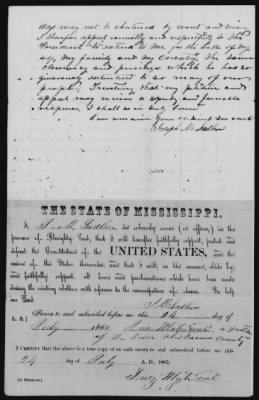 days may not be shortened by want and
I therefor appeal earnestly and respectfully to the
President to extend to me for the sake of my
self, my family and my Country, the same
clemency and pardon which he has so
generously extended to so many of our
people. Trusting that my petition and
appeal may receive a speedy and favorable
response, I shall as in duty bound
ever remain your obedient servant
Joseph M.
THE STATE OF MISSISSIPPI.
I, J. M. do solemnly swear (or affirm,) in the
presence of Almighty God, that I will henceforth faithfully support, protect and
defend the Constitution of the UNITED STATES, and the
union of the States thereunder, and that I will, in like manner, abide by,
and faithfully support all laws and proclamations which have been made
during the existing rebellion with reference to the emancipation of slaves. So help
me God.
J M
L. S. Sworn to and subscribed before me this 24 day of
July 1865
of the County
I CERTIFY that the above is a true copy of an oath sworn to and subscribed before me this
24 day of July A. D. 1865.